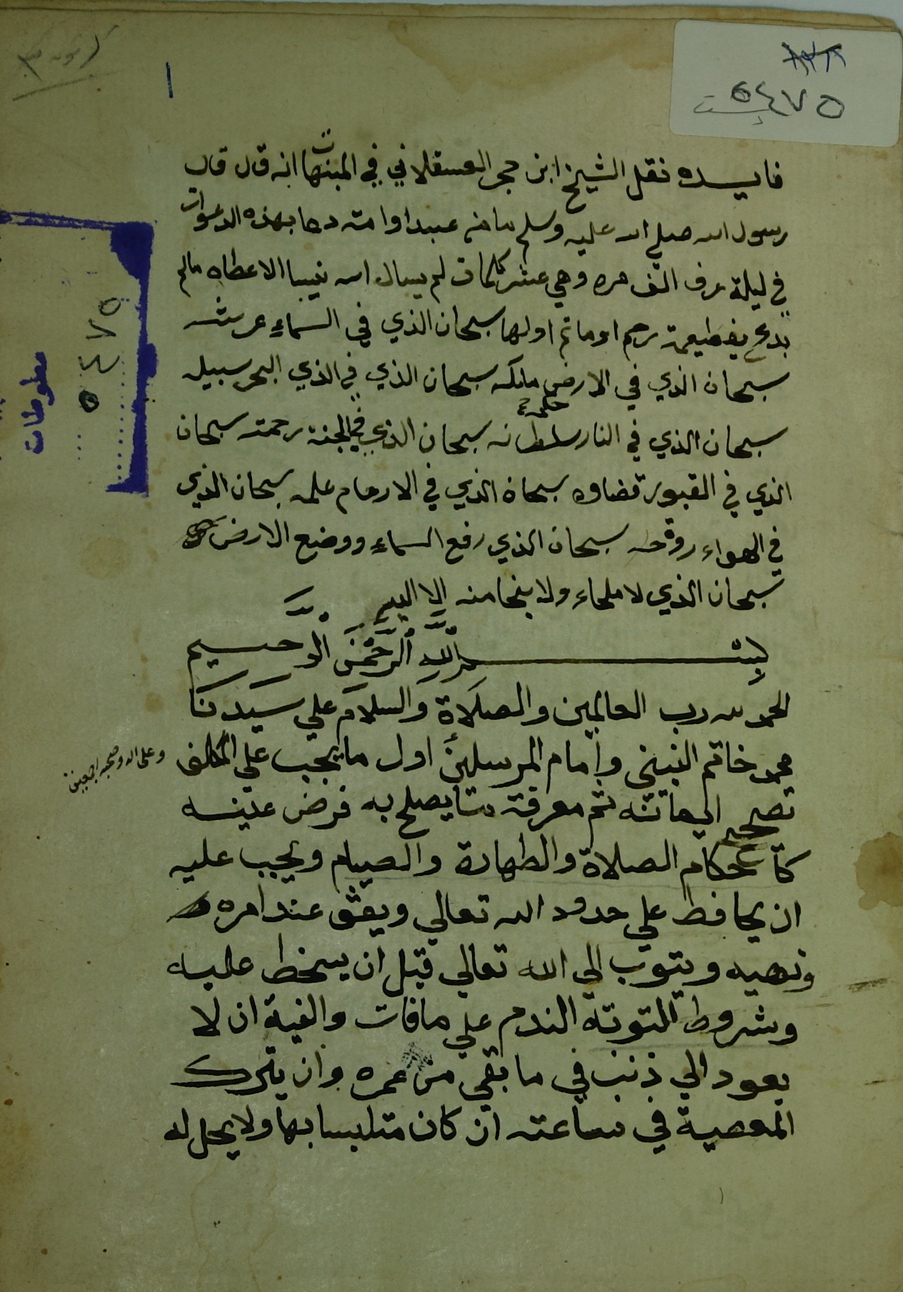 ٥٤٧٥
١
٥٤٧٥
مخطوطات
فايده نقل الشيخ ابن حجر العسقلاني في المبنهات انه قال قال
رسول الله صلي الله عليه وسلم مامن عبد اوامته دعا بهذه الدعوات
في ليلة عرف الف مره وهي عشر كلمات لم يسال الله شيا الا عطاه مالم
يدع بقطيعة رحم او ماثم اولها سبحان الذي في السماء عرشه
سبحان الذي في الارض ملكه سبحان الذي في البحر سبيله
سبحان الذي في النار سلطانه سبحان الذي في الجنة رحمته سبحان
الذي في القبور قضاوه سبحان الذي في الارحام علمه سبحان الذي
في الهواء روحه سبحان الذي رفع السماء ووضع الارض
سبحان الذي لا ملجاء ولا منجا منه الا اليه
بسم الله الرحمن الرحيم
الحمد لله رب العالمين والصلاة والسلام علي سيدنا
محمد خاتم النبين وامام المرسلين اول ما يجب علي المكلف
وعلى اله وصحبه اجمعين
تصحيح ايمانه ثم معرفة ما يصلح به فرض عينه
كاحكام الصلاة والطهارة والصيام ويجب عليه
ان يحافط علي حدود الله تعالي ويقف عند امره
ونهيه ويتوب الى الله تعالي قبل ان يسخط عليه
وشروط التوتة الندم علي مافات والنية ان لا
يعود الي ذنب في ما بقي من عمره وان يترك
المعصية في ساعته ان كان متلبسا بها ولا يحل له